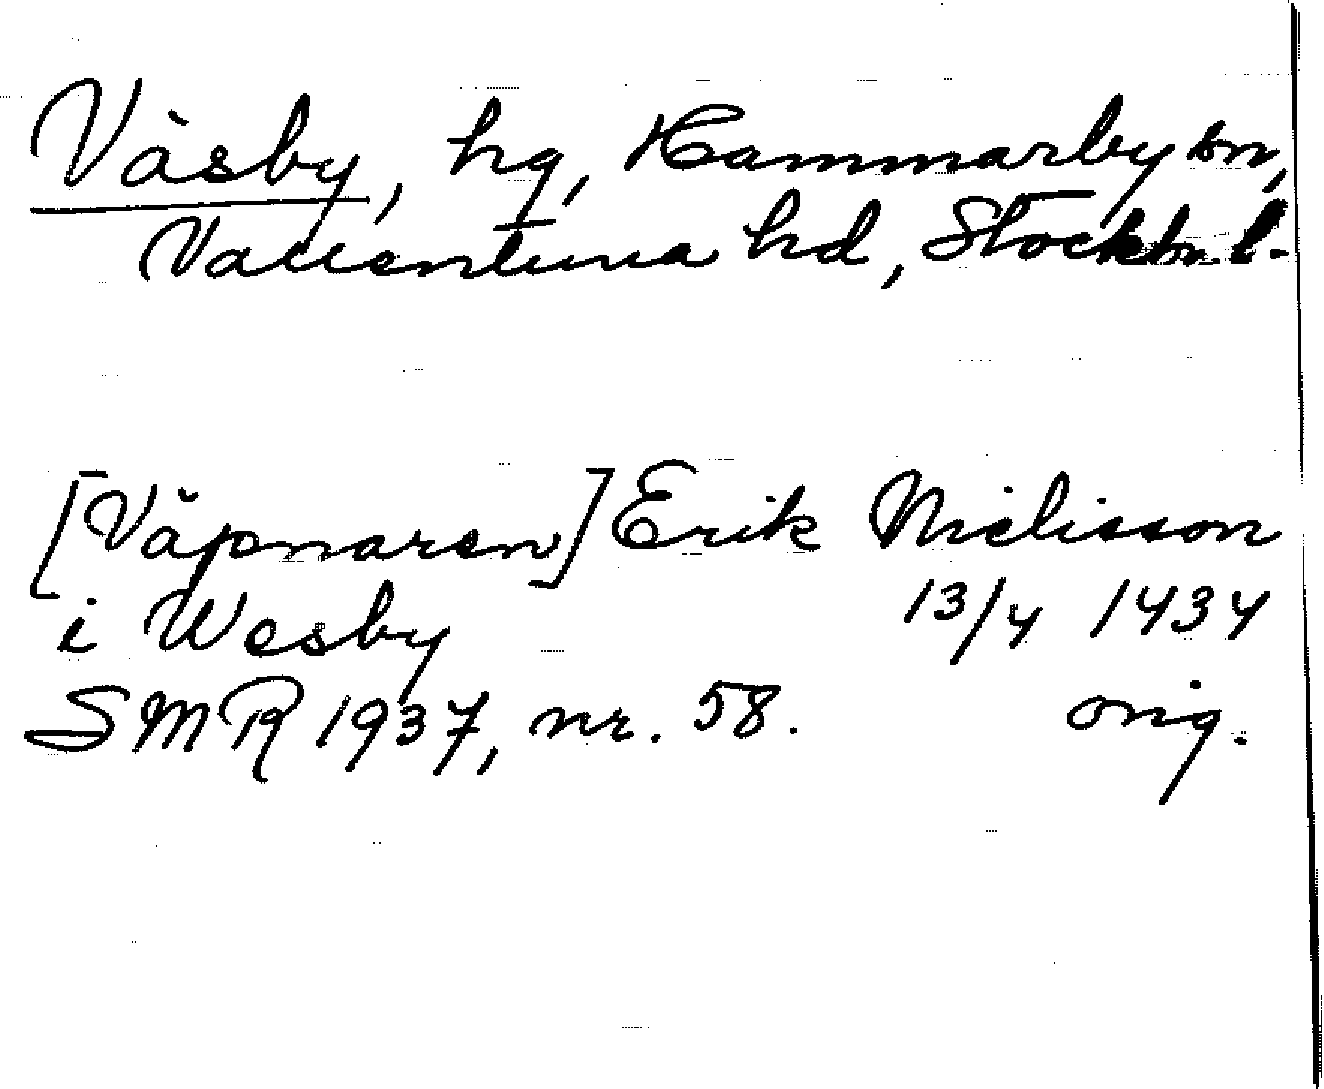 Väsby, hg, Hammarby sn,
Vallentuna hd, Stockh. l.
[Väpnaren] Erik Nielisson
i Wesby 13/4 1434
SMR 1937, nr. 58. orig.